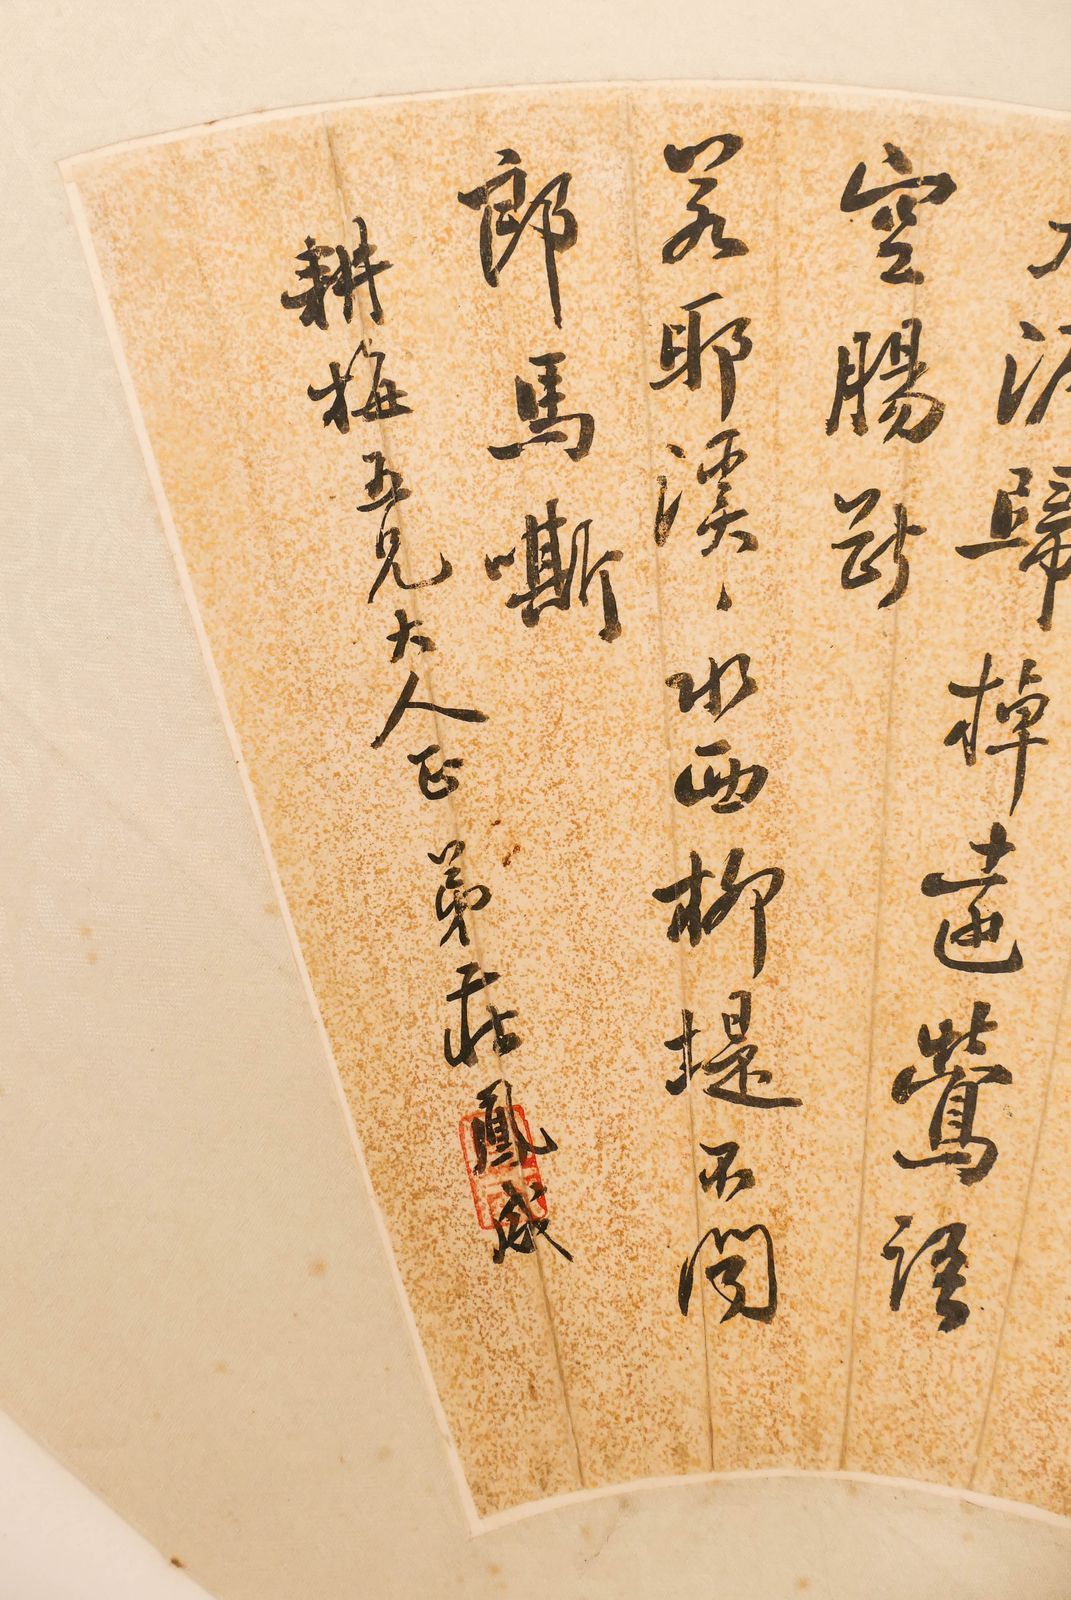 涯歸棹遠鶯語
空腸斷
若耶溪、水西柳堤不聞
郎馬嘶
耕梅五兄大人正 弟莊鳳威